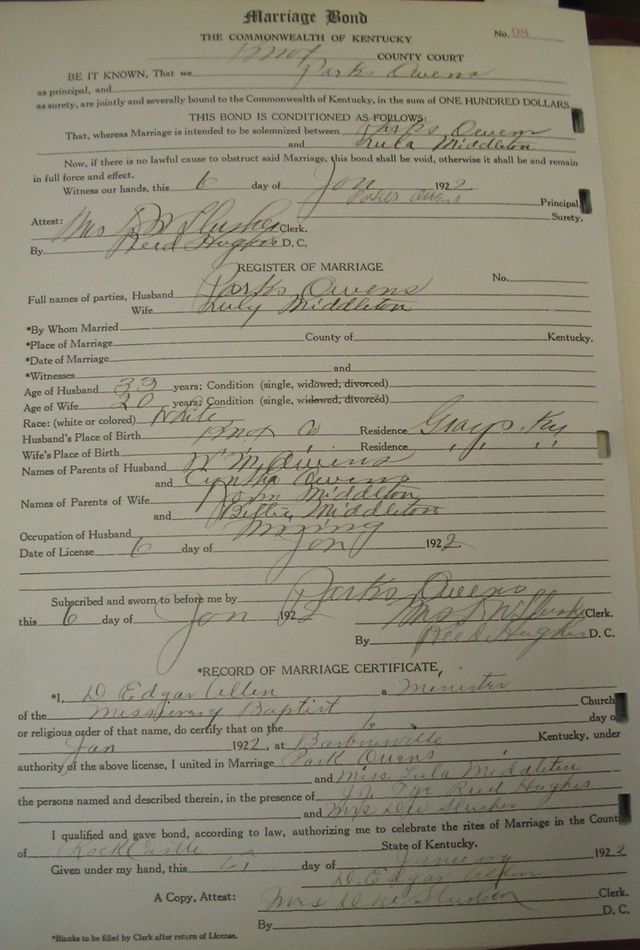 Marriage Bond
THE COMMONWEALTH OF KENTUCKY
No.
Knox COUNTY COURT
BE IT KNOWN, That we Parks Owens
as principal, and
as surety, are jointly and severally bound to the Commonwealth of Kentucky, in the sum of ONE HUNDRED DOLLARS.
THIS BOND IS CONDITIONED AS FOLLOWS:
That, whereas Marriage is intended to be solemnized between Parks Owens
and Lula Middleton
Now, if there is no lawful cause to obstruct said Marriage, this bond shall be void, otherwise it shall be and remain
in full force and effect.
Witness our hands, this 6 day of Jan 1922
Parks Owens Principal
Surety.
Attest:
Mrs D W Slusher Clerk.
By Reed Hughes D. C.
REGISTER OF MARRIAGE
No.
Full names of parties, Husband Parks Owens
Wife Luly Middleton
*By Whom Married
*Place of Marriage County of Kentucky.
*Date of Marriage
*Witnesses and
Age of Husband 33 years; Condition (single, widowed, divorced)
Age of Wife 20 years; Condition (single, widowed, divorced)
Race: (white or colored) White
Husband's Place of Birth Knox Co Residence Grays, Ky
Wife's Place of Birth " " Residence " "
Names of Parents of Husband W M Owens
and Cyntha Owens
Names of Parents of Wife Middleton
and Middleton
Occupation of Husband Mining
Date of License 6 day of Jan 1922
Subscribed and sworn to before me by Parks Owens
this 6 day of Jan 1922 Mrs D W Slusher Clerk.
By Reed Hughes D. C.
*RECORD OF MARRIAGE CERTIFICATE,
*I, D Edgar Allen a Minister
of the Missionary Baptist Church
or religious order of that name, do certify that on the 6 day o
Jan 1922, at Barbourville Kentucky, under
authority of the above license, I united in Marriage Park Owens
and Miss Lula Middleton
the persons named and described therein, in the presence of Reed Hughes
and Mrs D W Slusher
I qualified and gave bond, according to law, authorizing me to celebrate the rites of Marriage in the Count
of Rockcastle State of Kentucky.
Given under my hand, this 6 day of January 1922
D. Edgar Allen
A Copy, Attest: Mrs D W Slusher Clerk.
By D. C.
*Blanks to be filled by Clerk after return of License.